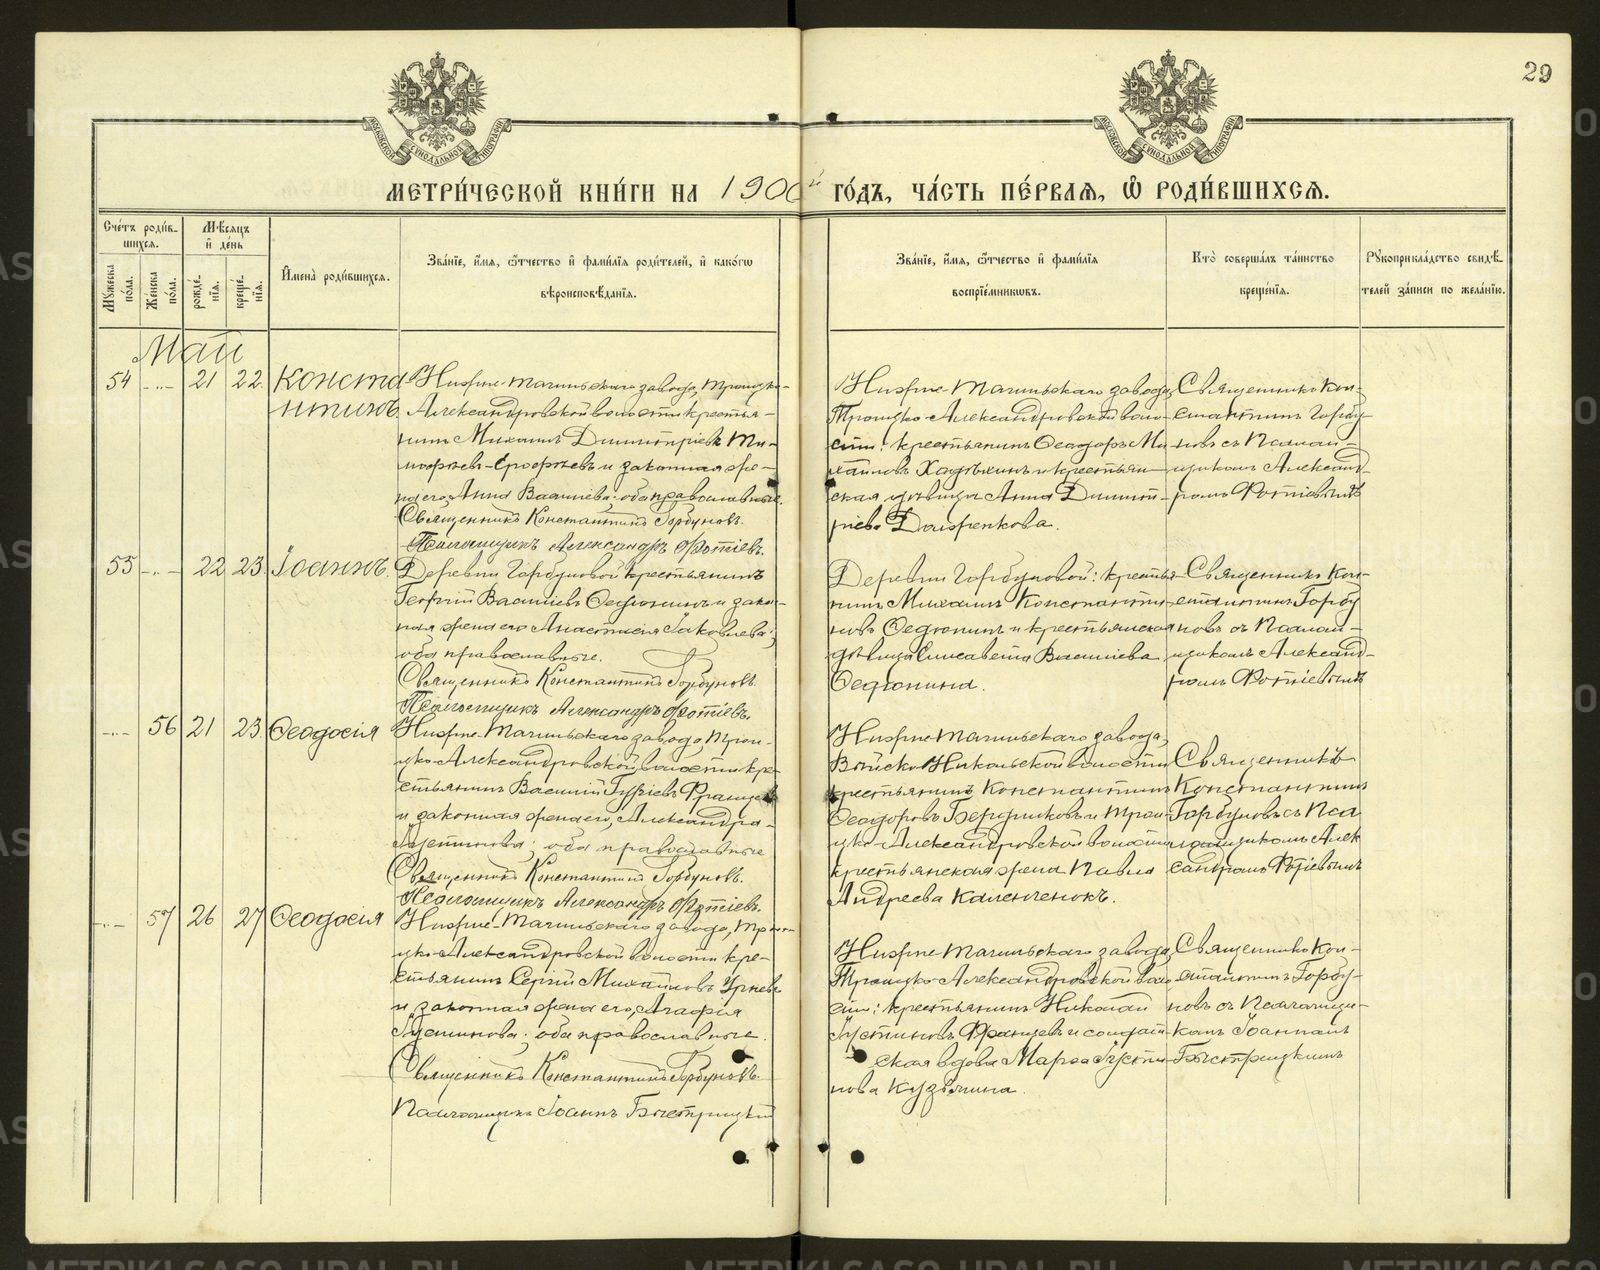 29
МОСКОВСКОЙ СѴНОДАЛЬНОЙ ТИПОГРАФІИ
МОСКОВСКОЙ СѴНОДАЛЬНОЙ ТИПОГРАФІИ
МЕТРИ́ЧЕСКОЙ КНИ́ГИ НА 1900й ГО́ДЪ, ЧА́СТЬ ПЕ́РВАѦ, Ѡ҆ РОДИ́ВШИХСѦ.
Сче́тъ роди́в-
шихсѧ.
Мѹ́жеска по́ла.
Же́нска по́ла.
Мѣ́сѧцъ и҆ де́нь
рожде́-нїѧ.
креще́-нїѧ.
И҆мена̀ роди́вшихсѧ.
Зва́нїе, и҆́мѧ, ѻ҆́тчество и҆ фами́лїѧ роди́телей, и҆ како́гѡ
вѣроисповѣ́данїѧ.
Зва́нїе, и҆́мѧ, ѻ҆́тчество и҆ фами́лїѧ
воспрїе́мникѡвъ.
Кто̀ соверша́лъ та́инство
креще́нїѧ.
Рꙋкоприкла́дство свидѣ́-
телей за́писи по жела́нїю.
Май
54 -"- 21 22 Конста
нтинъ
Нижне-Тагильскаго завода, Троицко-
Александровской волости крестья-
нинъ Михаилъ Димитріевъ Ти-
мофѣевъ-Ерофѣевъ и законная же-
на его Анна Васильева: оба православные.
Священникъ Константинъ Горбуновъ.
Псаломщикъ Александръ Фотіевъ.
Нижне-Тагильскаго завода,
Троицко-Александровской воло-
сти: крестьянинъ Ѳеодоръ Ми
хайловъ и крестьян-
ская дѣвица Анна Димит-
ріева Долженкова.
Священникъ Кон-
стантинъ Горбу
новъ съ Псалом-
щикомъ Александ-
ромъ Фотіевымъ
55 -"- 22 23 Іоаннъ.
Деревни Горбуновой крестьянинъ
Георгій Васильевъ Ѳедюнинъ и закон-
ная жена его Анастасія Іаковлева;
оба православные.
Священникъ Константинъ Горбуновъ.
Псаломщикъ Александръ Фотіевъ.
Деревни Горбуновой: крестья-
нинъ Михаилъ Константи-
новъ Ѳедюнинъ и крестьянская
дѣвица Елисавета Васильева
Ѳедюнина.
Священникъ Кон-
стантинъ Горбу
новъ съ Псалом-
щикомъ Александ-
ромъ Фотіевымъ
-"- 56 21 23 Ѳеодосія
Нижне-Тагильскаго завода, Трои-
цко-Александровской волости кре-
стьянинъ Василій Гуріевъ Францевъ
и законная жена его, Александра
оба православные
Священникъ Константинъ Горбуновъ.
Псаломщикъ Александръ Фотіевъ.
Нижне-Тагильскаго завода,
Выйско-Никольской волости
крестьянинъ Константинъ
Ѳеодоровъ Бердниковъ и Трои-
цко-Александровской волости
крестьянская жена Павла
Андреева Каленченокъ.
Священникъ
Константинъ
Горбуновъ съ Пса
ломщикомъ Алек
сандромъ Фотіевымъ
-"- 57 26 27 Ѳеодосія
Нижне-Тагильскаго завода, Трои-
цко-Александровской волости кре-
стьянинъ Сергій Михайловъ
и законная жена его, Агафія
Іустинова; оба православные.
Священникъ Константинъ Горбуновъ.
Псаломщикъ Іоаннъ Быстрицкій
Нижне-Тагильскаго завода,
Троицко-Александровской воло
сти: крестьянинъ Николай
Іустиновъ Францевъ и солдат-
ская вдова Марѳа Іусти-
нова Кузьмина.
Священникъ Кон-
стантинъ Горбу-
новъ съ Псаломщи-
комъ Іоанномъ
Быстрицкимъ